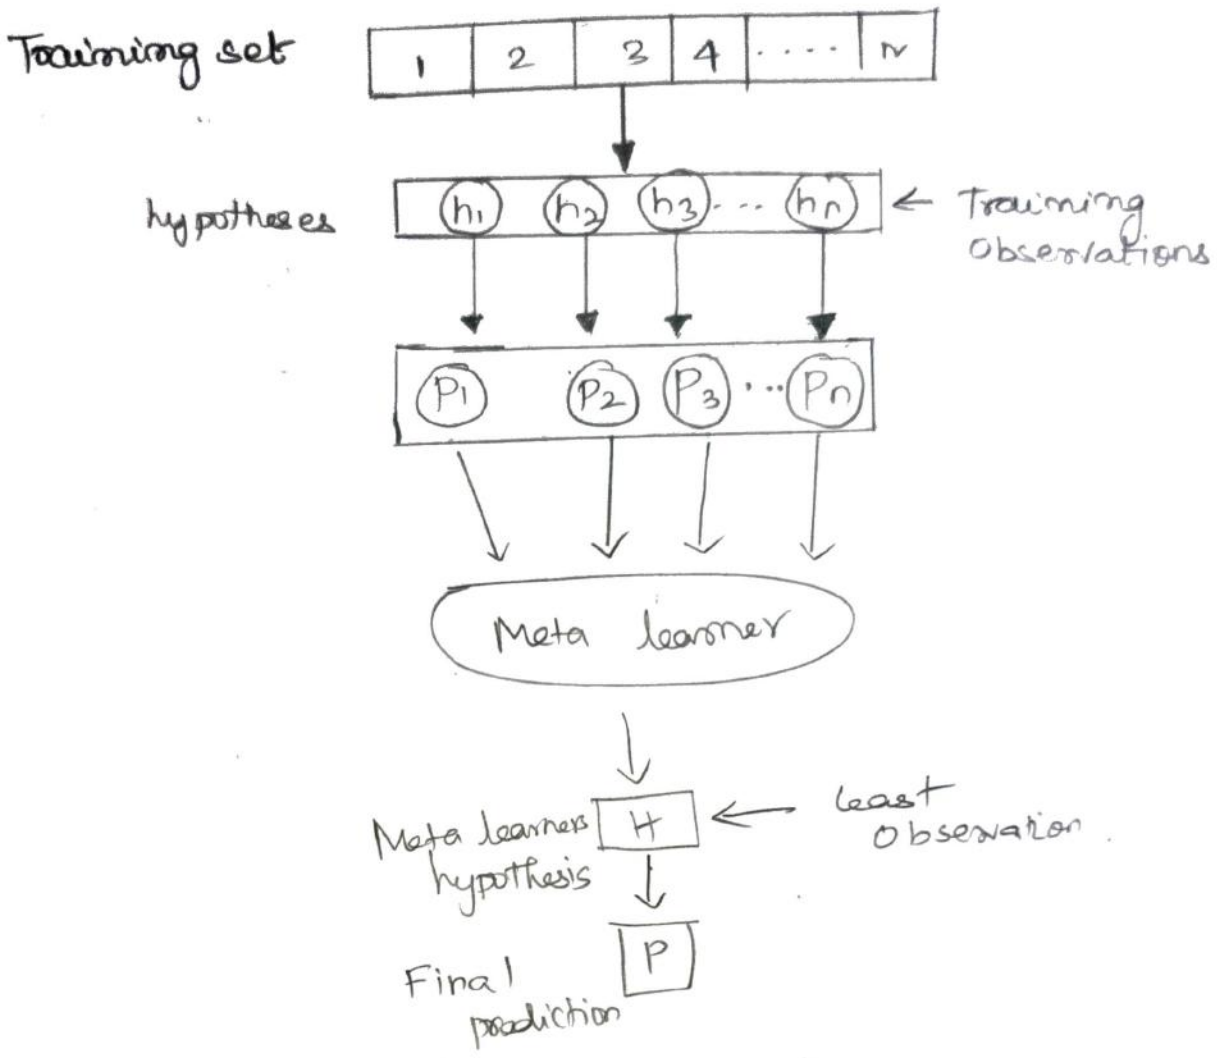 Training set
1 2 3 4 ..... n
hypotheses
h1 h2 h3 ... hn
← Training
Observations
P1 P2 P3 ... Pn
Meta learner
Meta learners
hypothesis
H
← Least
Observation
Final
prediction
P